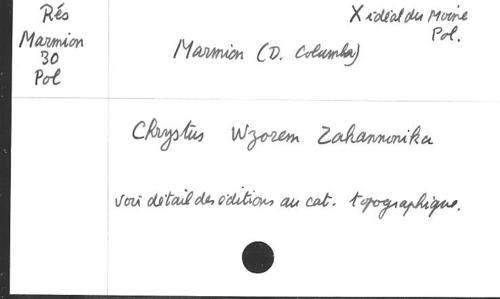 Rés
Marmion
30
Pol
X idéal du Moine
Pol.
Marmion (D. Columba)
Chrystus Wzorem Zakannonika
voir détail des éditions au cat. topographique.